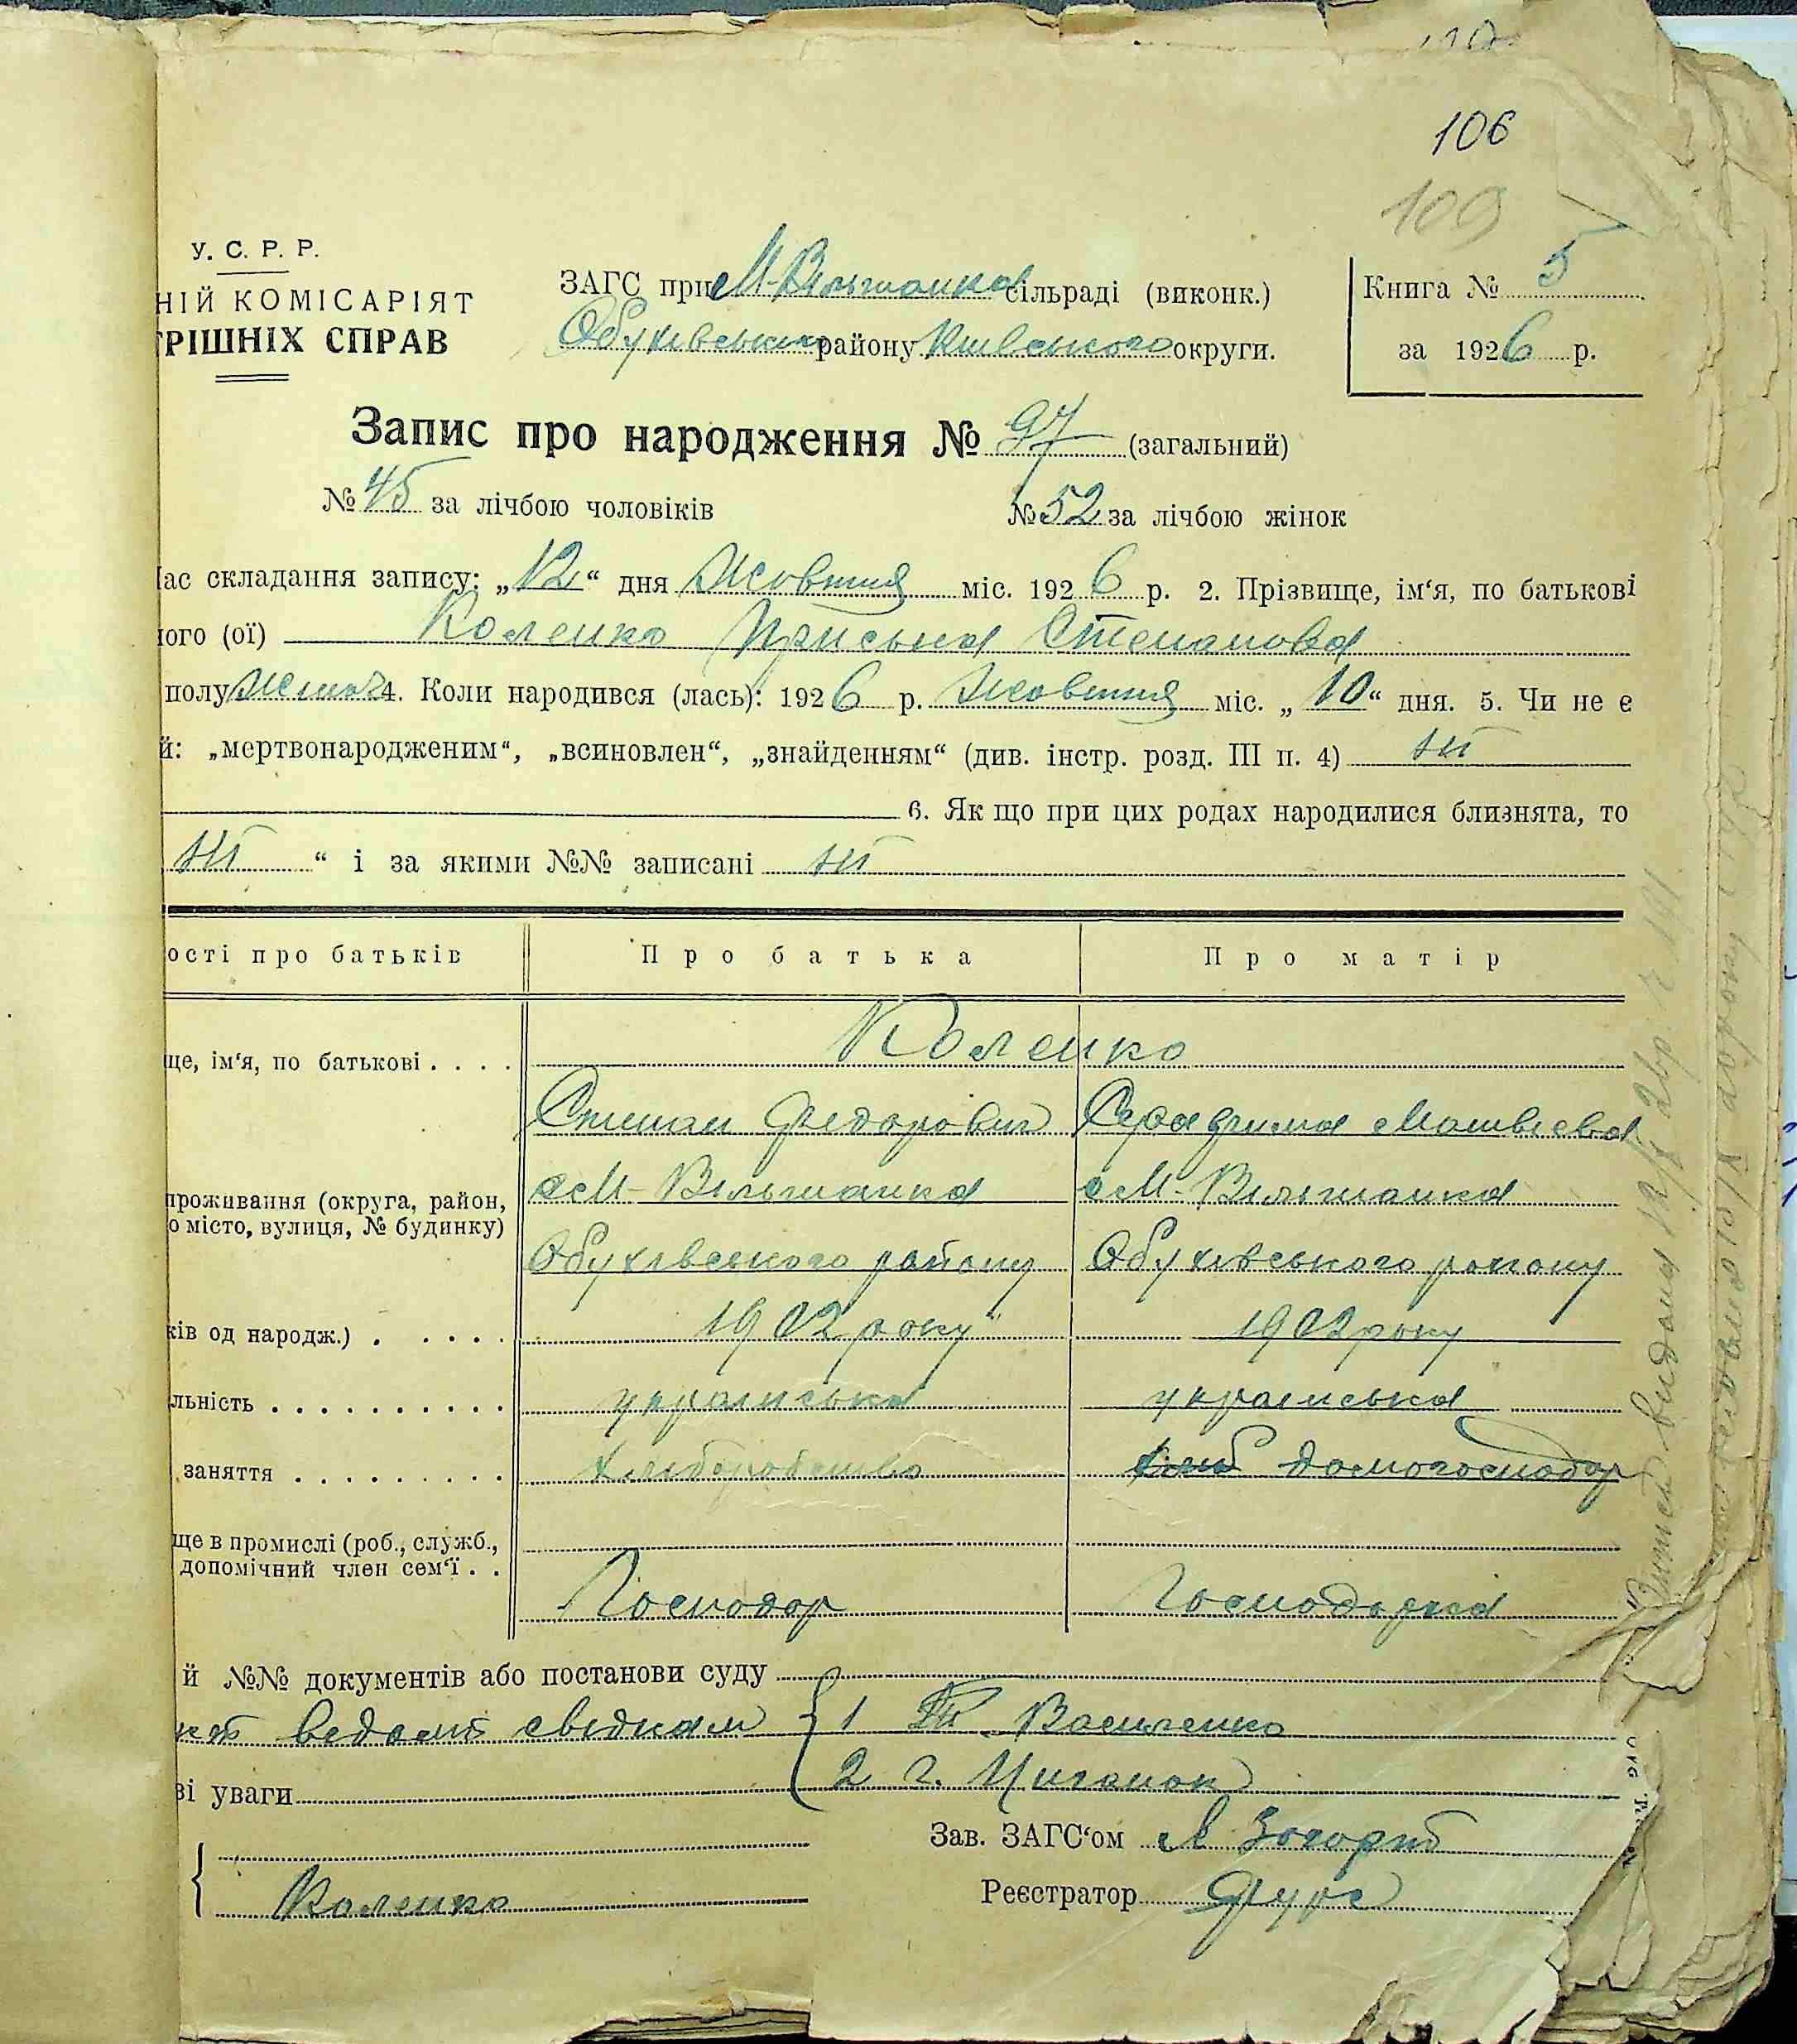 106
109
У. С. Р. Р.
НІЙ КОМІСАРІЯТ
ТРІШНІХ СПРАВ
ЗАГС при М-Вільшанка сільраді (виконк.)
Обухівського району Київського округи.
Книга № 5
за 1926 р.
Запис про народження № 97 (загальний)
№ 45 за лічбою чоловіків № 52 за лічбою жінок
Час складання запису: „12“ дня Жовтня міс. 1926 р. 2. Прізвище, ім‘я, по батькові
ного (ої) Коленко Приська Степанова
полу жіноч 4. Коли народився (лась): 1926 р. Жовтня міс. „10“ дня. 5. Чи не є
й: „мертвонародженим“, „всиновлен“, „знайденням“ (див. інстр. розд. III п. 4) ні
6. Як що при цих родах народилися близнята, то
ні “ і за якими №№ записані ні
ості про батьків Про батька Про матір
ще, ім‘я, по батькові . . . . Коленко
Степан Федорович Серафима Матвієва
проживання (округа, район, с М-Вільшанка с М-Вільшанка
о місто, вулиця, № будинку)
Обухівського району Обухівського району
ків од народж.) . . . . . 1902 року 1902 року
льність . . . . . . . . . . українська українська
заняття . . . . . . . . . хліборобство домогосподар
ще в промислі (роб., служб.,
допомічний член сем‘ї . .
Господар Господарка
й №№ документів або постанови суду
відомі свідкам { 1 Василенко
2 г. Циганок
ві уваги
Зав. ЗАГС‘ом
Коленко
Реєстратор Фурс